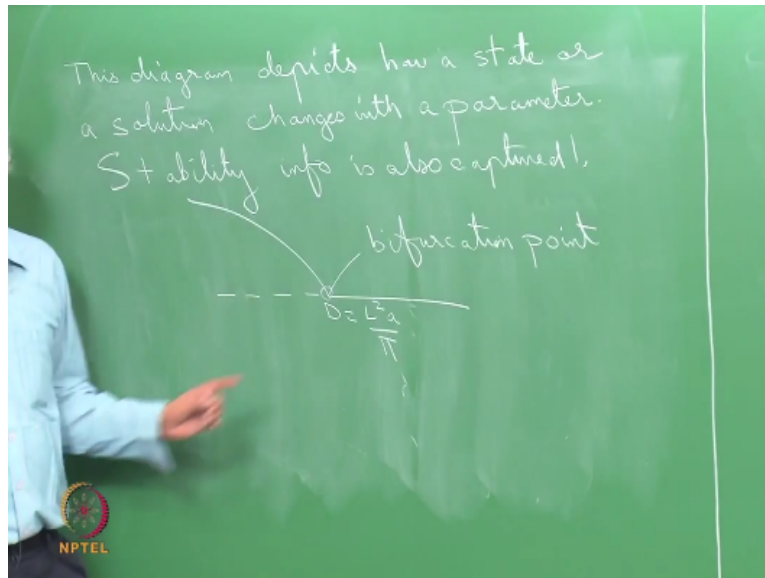 This diagram depicts how a state or
a solution changes with a parameter.
Stability info is also captured!.
bifurcation point
D = L²a
π
NPTEL